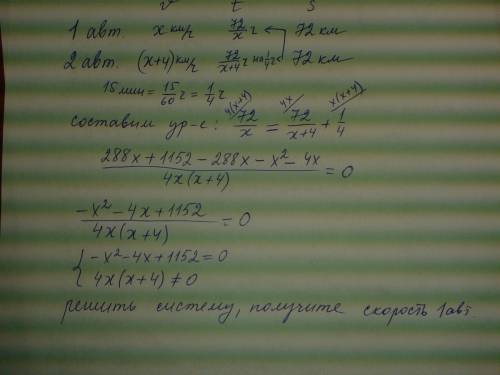 v t s
1 авт. x км/ч 72/x ч 72 км
2 авт. (x+4) км/ч 72/(x+4) ч на 1/4 ч < 72 км
15 мин = 15/60 ч = 1/4 ч
составим ур-е: 4(x+4)/ 72/x = 4x/ 72/(x+4) + x(x+4)/ 1/4
(288x + 1152 - 288x - x² - 4x)/(4x(x+4)) = 0
(-x² - 4x + 1152)/(4x(x+4)) = 0
{ -x² - 4x + 1152 = 0
4x(x+4) ≠ 0
решить систему, получите скорость 1 авт.